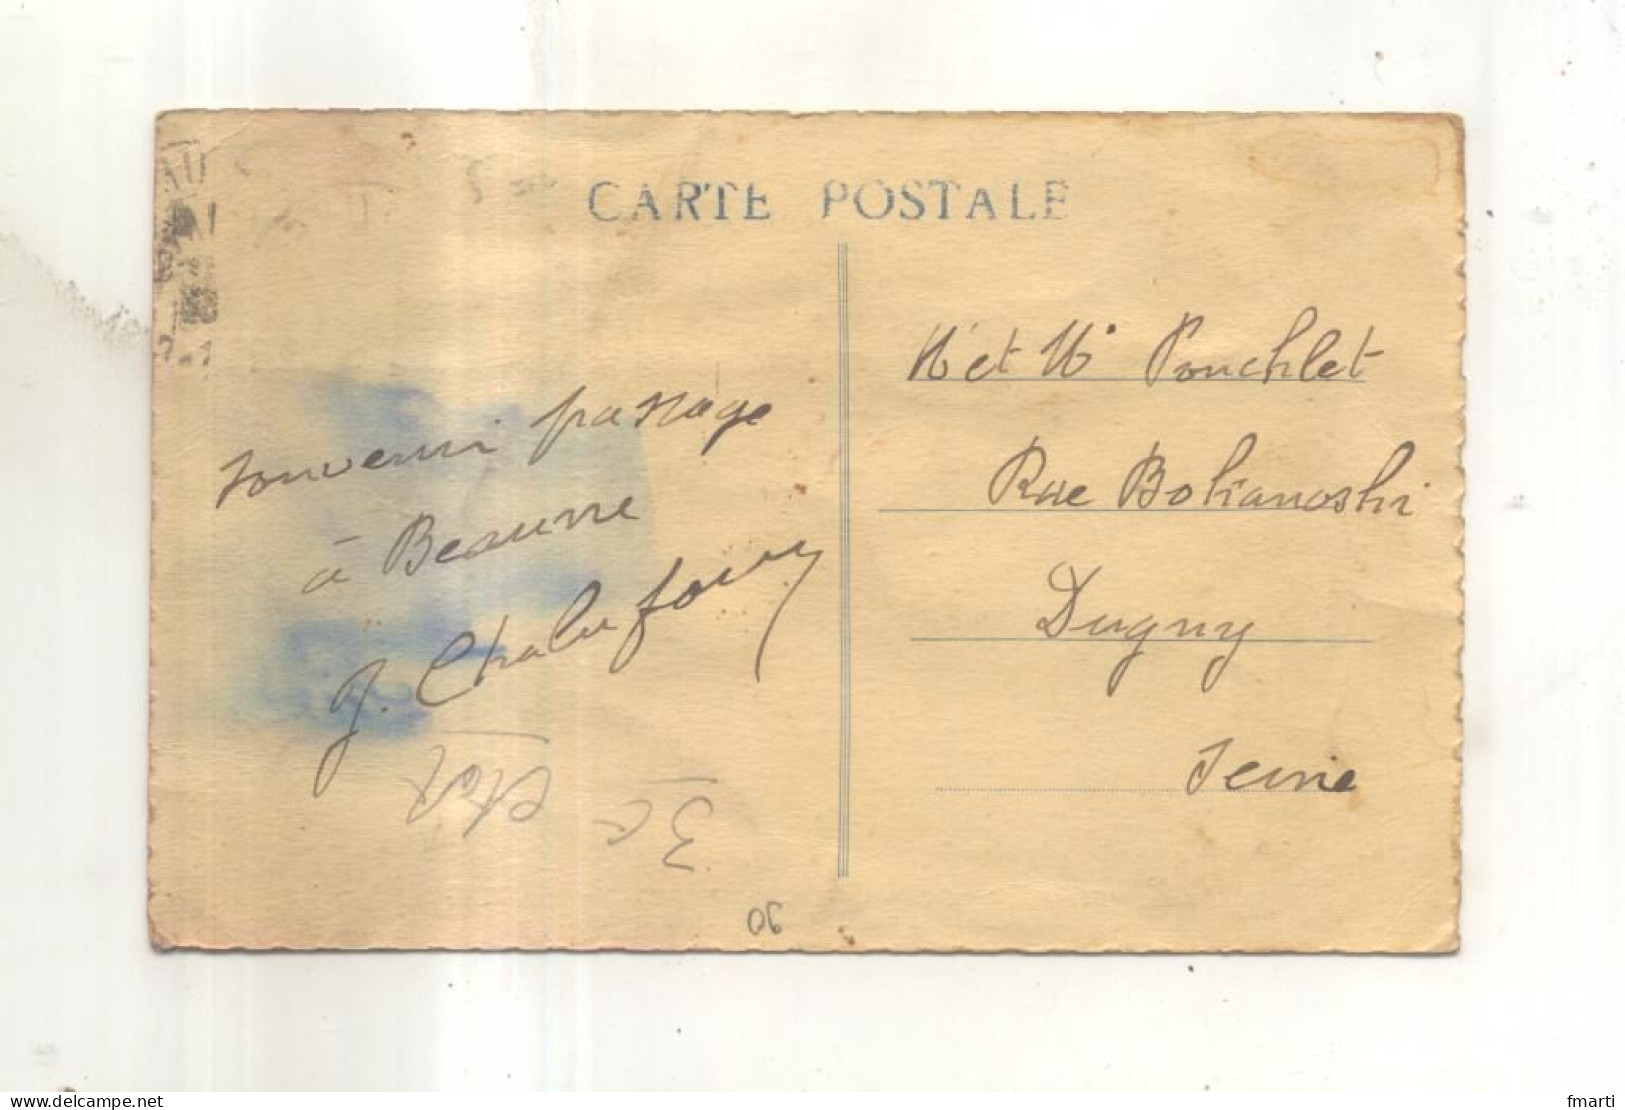 CARTE POSTALE
souvenir passage
à Beaune
J.
Mr et Mme Pouchlet
Rue Bokanoski
Dugny
Seine
3€
90
www.delcampe.net
fmarti